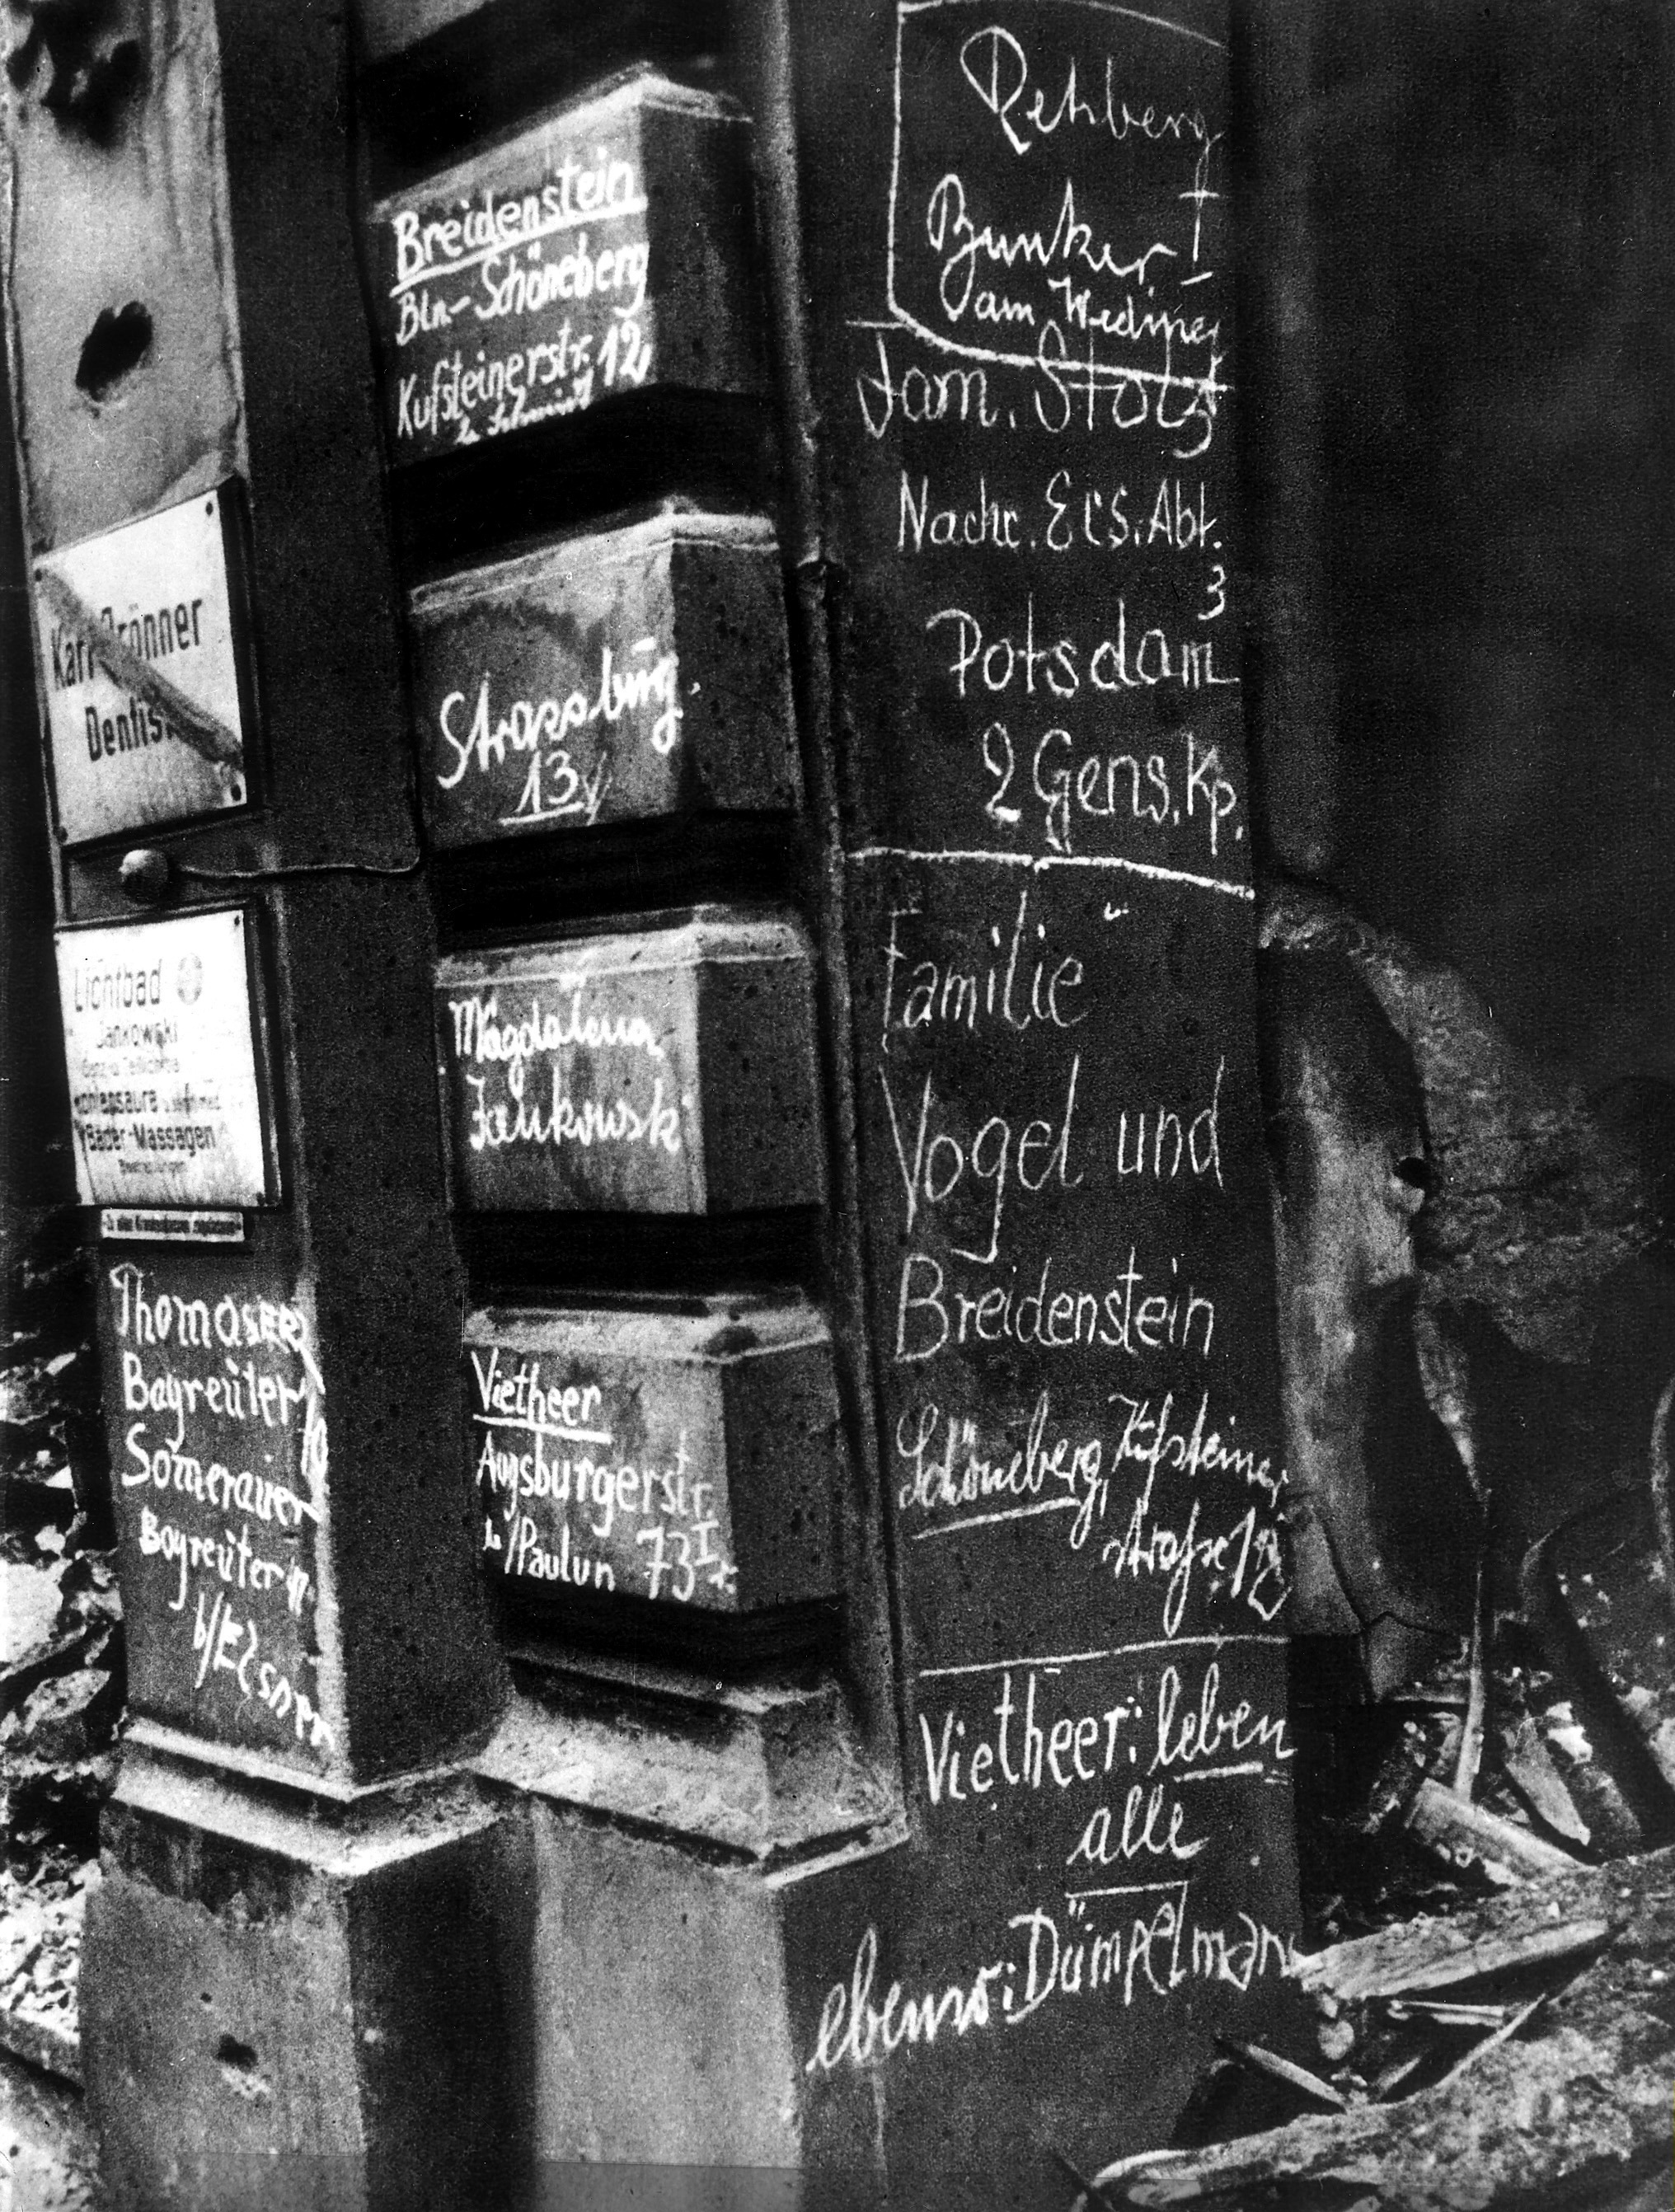 Karl Brönner
Dentist
Lichtbad
Jankowski
Kohlensäure
Bäder-Massagen
Thomas
Bayreuter
Somerauer
Bayreuter
Breidenstein
Bln-Schöneberg
Kufsteinerstr. 12
Strassburg.
13
Magdalena
Jankowski
Vietheer
Augsburgerstr.
b/Paulun 73 I
Rehberg
Bunker I
am
Fam. Stolz
Nachr. Ers. Abt.
3
Potsdam
2 Gens. Kp.
Familie
Vogel und
Breidenstein
Schöneberg, Kufsteiner
straße
Vietheer: leben
alle
ebenso: Dümpelman